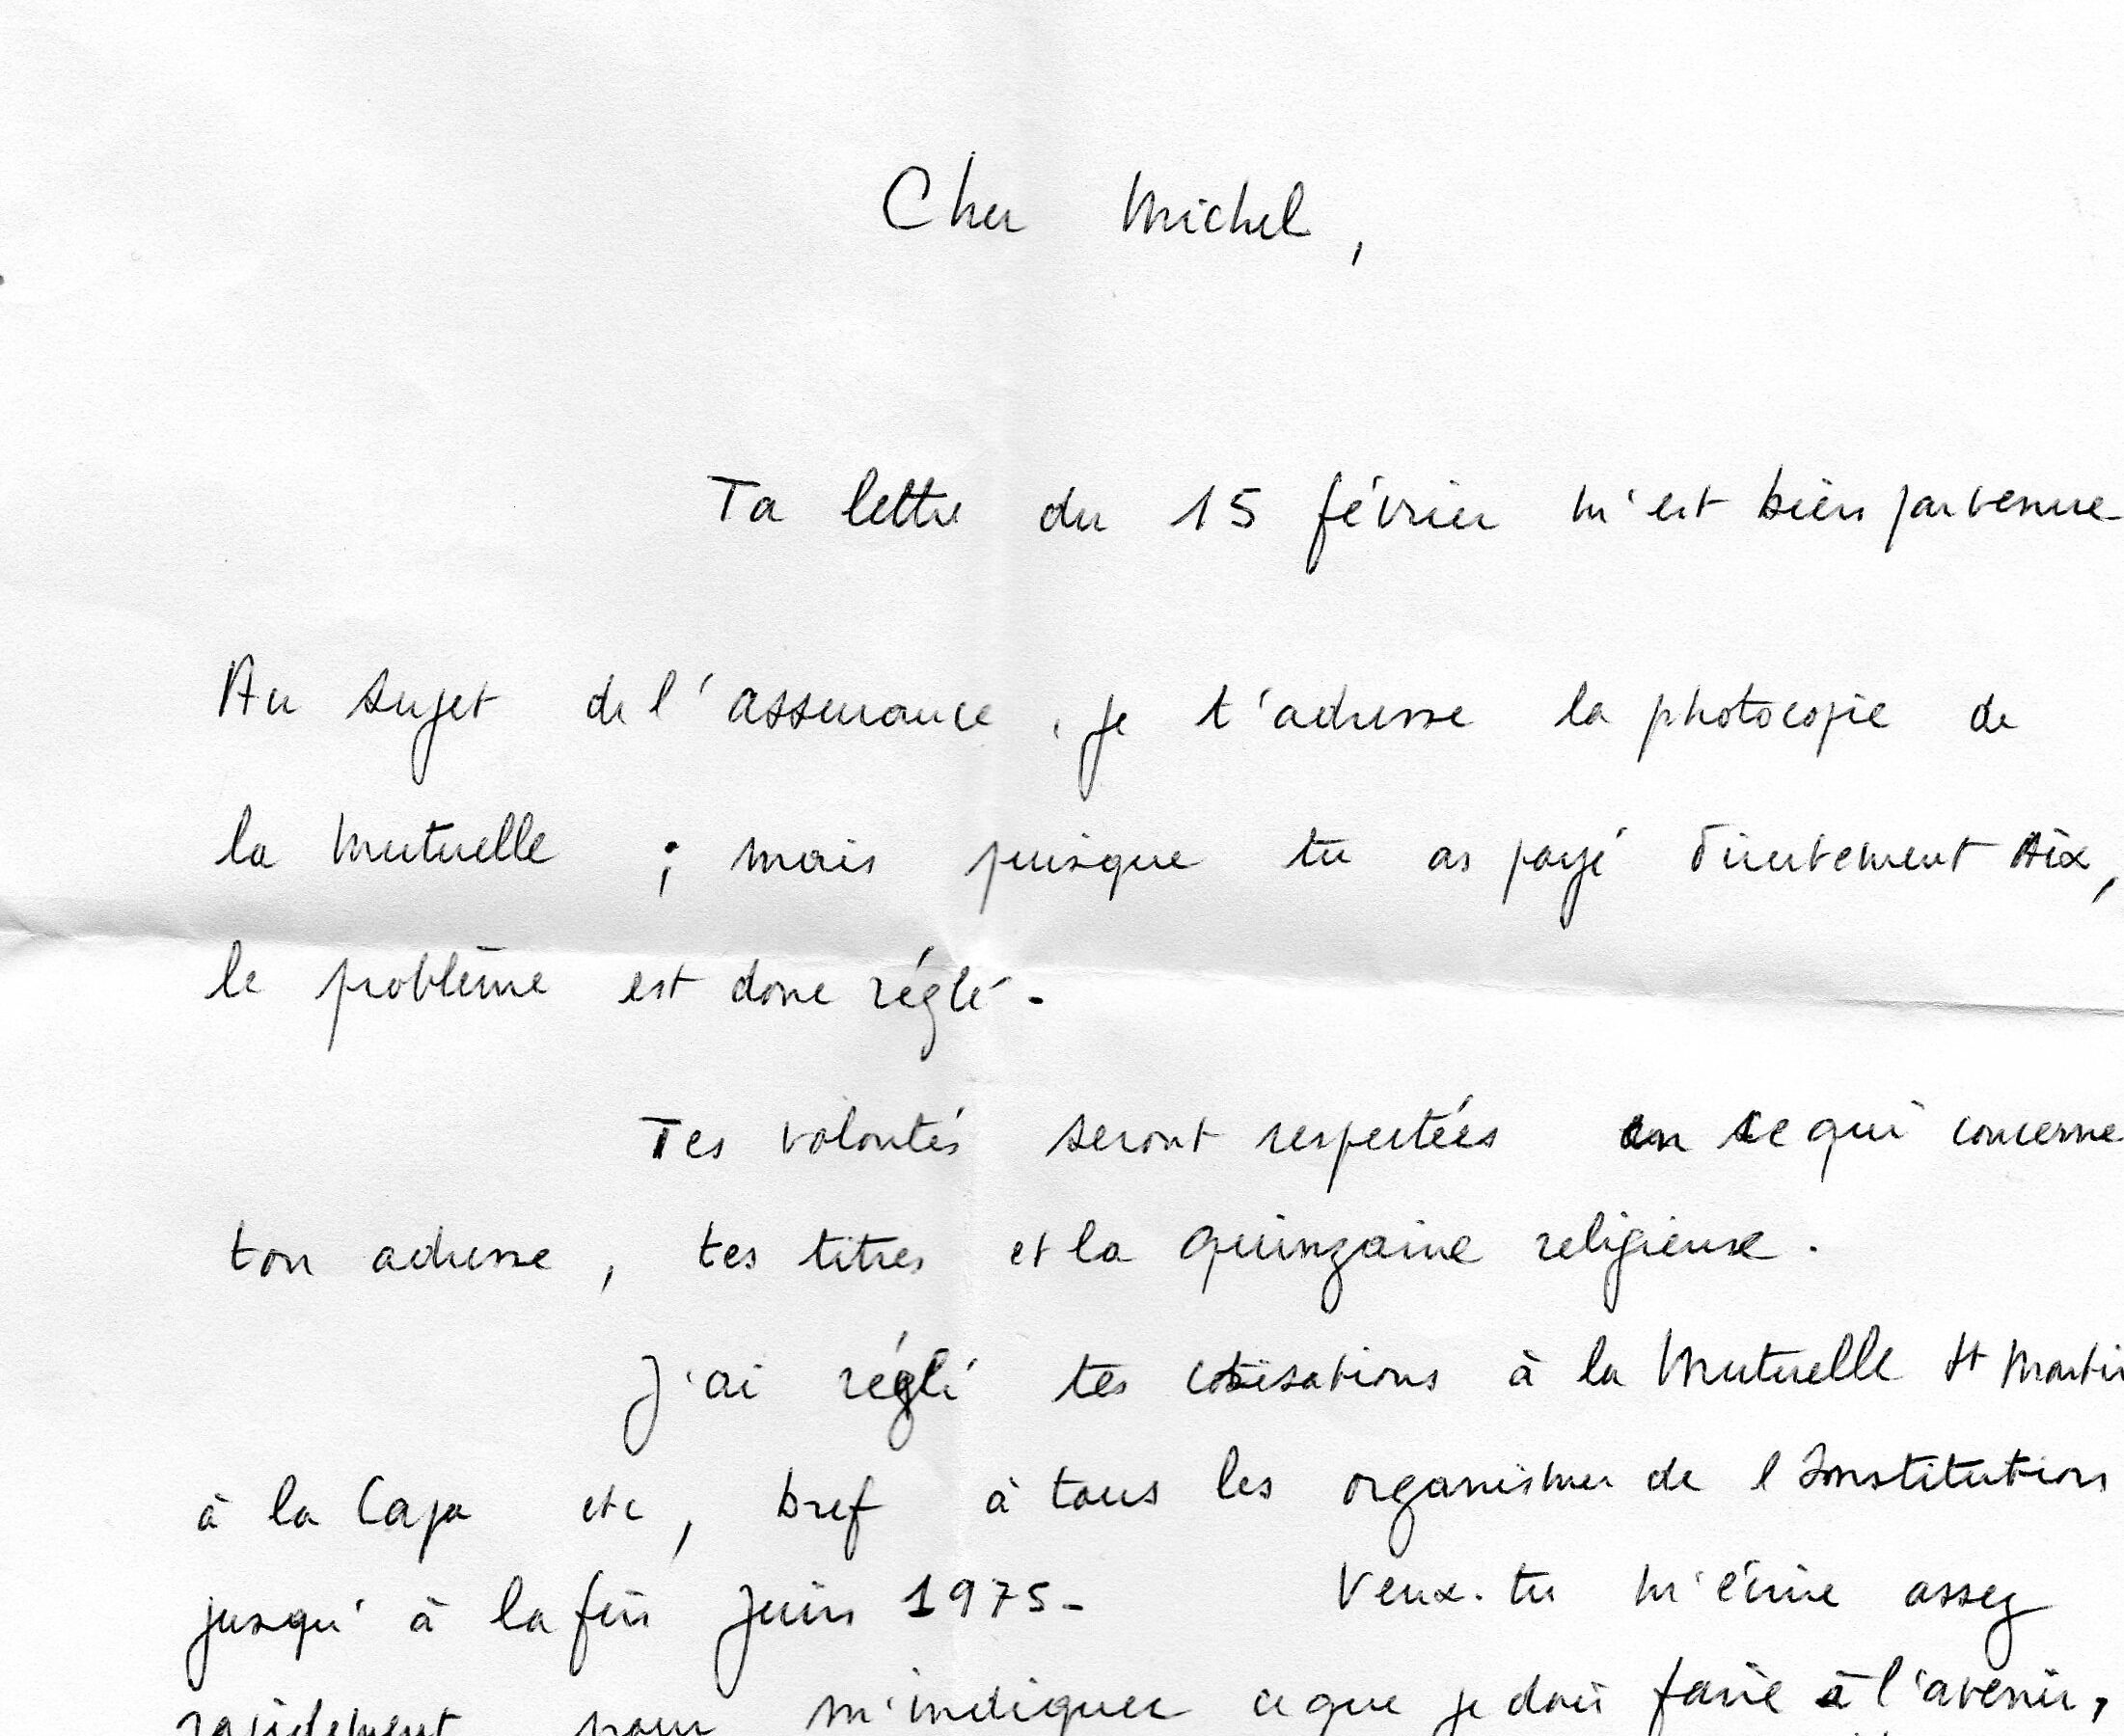 Cher Michel,
Ta lettre du 15 février m'est bien parvenue
Au sujet de l'assurance, je t'adresse la photocopie de
la Mutuelle ; mais puisque tu as payé directement Aix,
le problème est donc réglé-
Tes volontés seront respectées en ce qui concerne
ton adresse, tes titres et la Quinzaine religieuse.
J'ai réglé tes cotisations à la Mutuelle St Martin
à la Capa etc, bref à tous les organismes de l'Institution
jusqu'à la fin Juin 1975- Veux-tu m'écrire assez
rapidement pour m'indiquer ce que je dois faire à l'avenir,